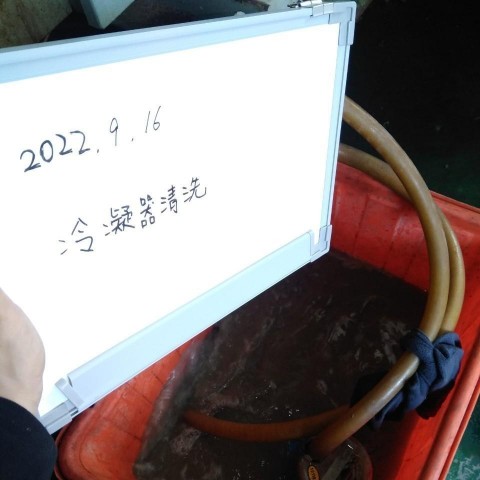 2022.9.16
冷凝器清洗